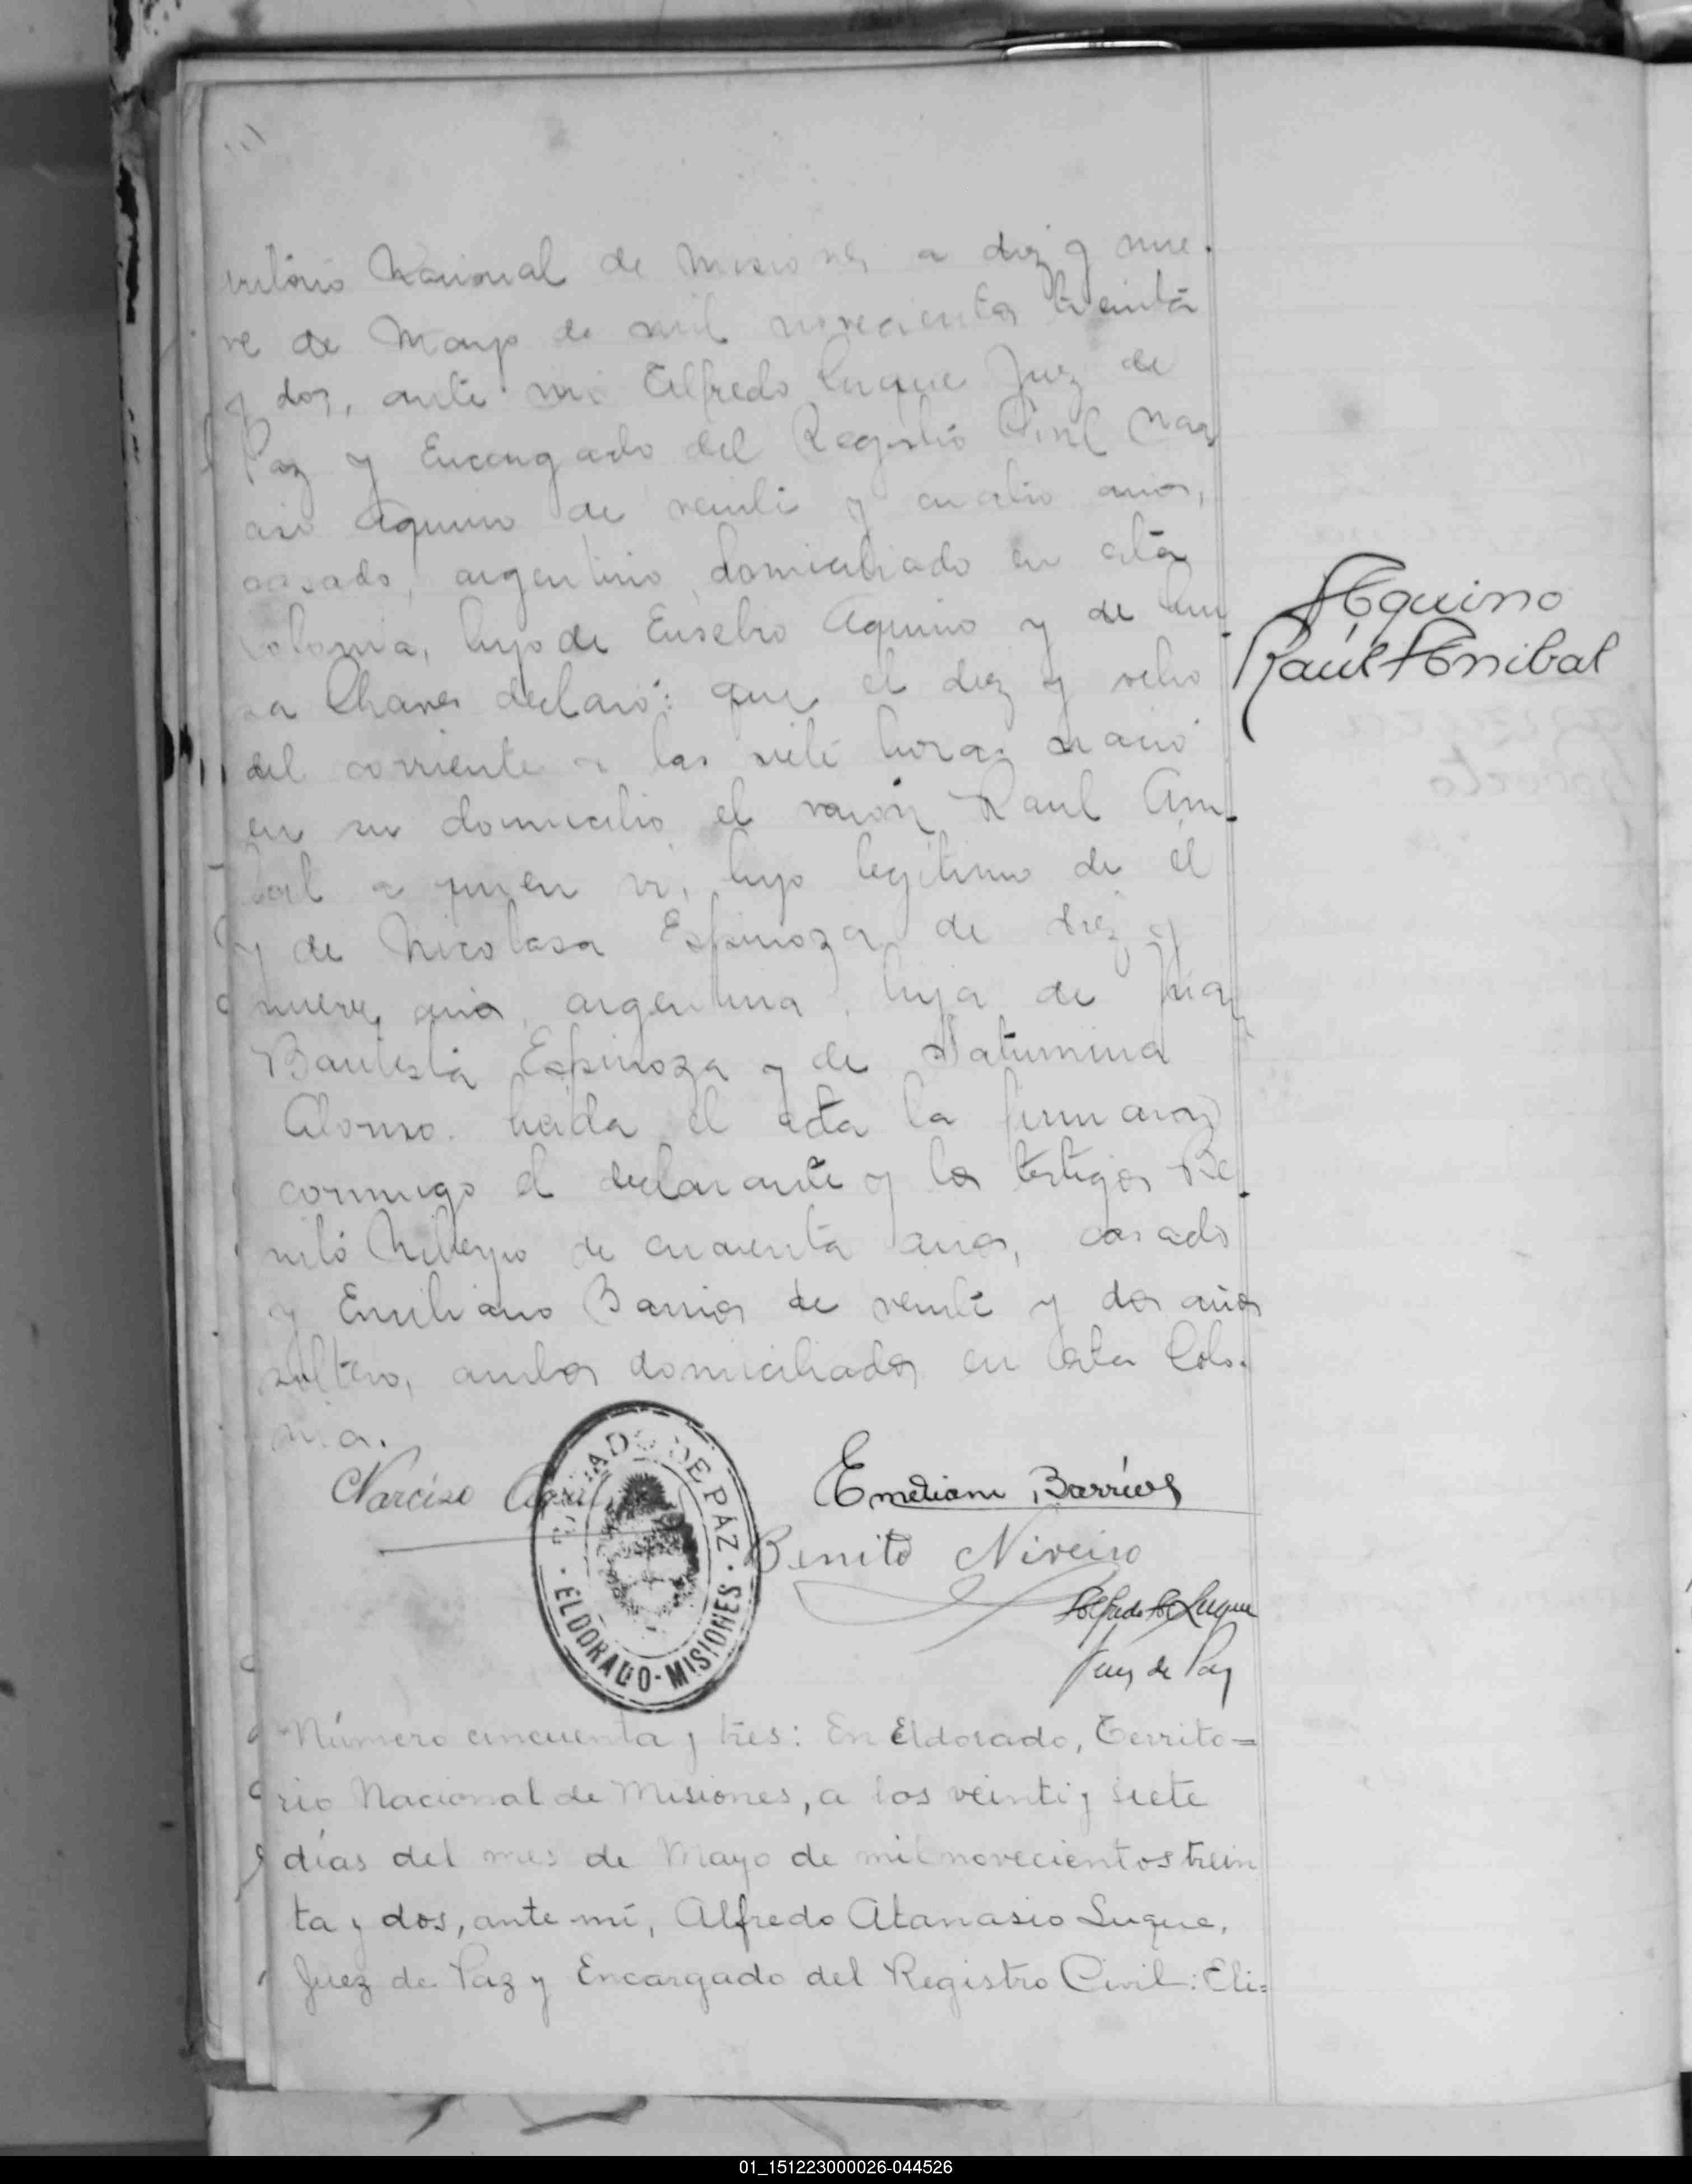 rritório Nacional de Misiones a diez y nue-
ve de Mayo de mil novecientos treinta
y dos, ante mi Alfredo Luque Juez de
Paz y Encargado del Registro Civil Nar
ciso Aquino de veinti y cuatro años,
casado, argentino, domiciliado en esta
colonia, hijo de Eusebio Aquino y de
sa Chaves declaró: que el diez y ocho
del corriente a las siete horas nació
en su domicilio el varón Raul Ani-
bal a quien vi, hijo legitimo de él
y de Nicolasa Espinoza de diez y
nueve años, argentina, hija de Juan
Bautista Espinoza y de Saturnina
Alonso. Leida el acta la firmaron
conmigo el declarante y los testigos Be-
nito de cuarenta años, casado
y Emiliano Barrios de veinti y dos años
soltero, ambos domiciliados en esta Colo-
nia.
Aquino
Raúl Anibal
Narciso Aquino
JUZGADO DE PAZ · ELDORADO-MISIONES ·
Emeliano Barrios
Benito Niveiro
Alfredo A. Luque
Juez de Paz
Número cincuenta y tres: En Eldorado, Territo=
rio Nacional de Misiones, a los veinti y siete
días del mes de Mayo de mil novecientos trein
ta y dos, ante mí, Alfredo Atanasio Luque,
Juez de Paz y Encargado del Registro Civil: Eli=
01_151223000026-044526